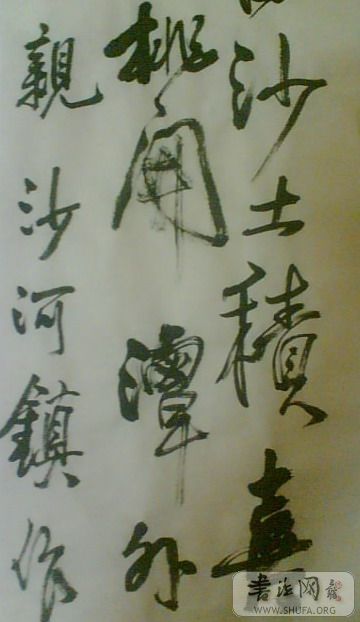 沙土積喜
桃開潭外
親沙河鎮作
書法网
WWW.SHUFA.ORG